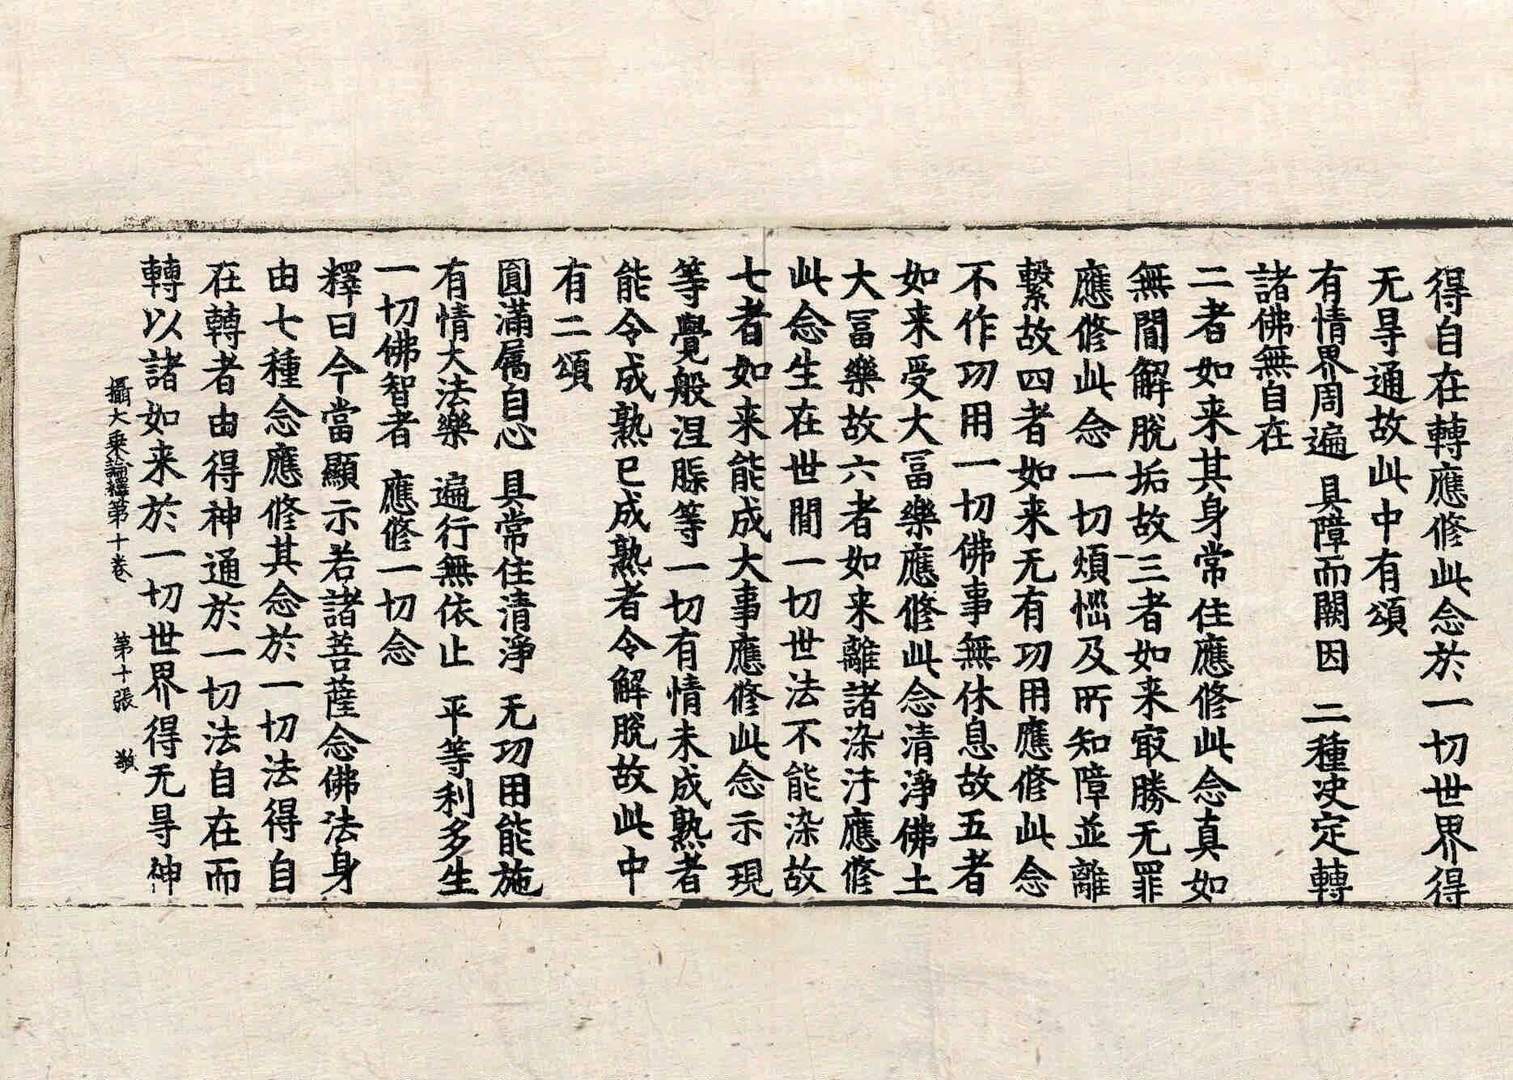 得自在轉應修此念於一切世界得
无㝵通故此中有頌
有情界周遍 具障而闕因 二種决定轉
諸佛無自在
二者如来其身常住應修此念真如
無閒解脫垢故三者如来㝡勝无罪
應修此念一切煩惱及所知障並離
繫故四者如来无有功用應修此念
不作功用一切佛事無休息故五者
如来受大冨樂應修此念清淨佛土
大冨樂故六者如来離諸染汙應修
此念生在世閒一切世法不能染故
七者如来能成大事應修此念示現
等覺般涅槃等一切有情未成熟者
能令成熟已成熟者令解脫故此中
有二頌
圓滿属自心 具常住清淨 无功用能施
有情大法樂 遍行無依止 平等利多生
一切佛智者 應修一切念
釋曰今當顯示若諸菩薩念佛法身
由七種念應修其念於一切法得自
在轉者由得神通於一切法自在而
轉以諸如来於一切世界得无㝵神
攝大乘論釋第十卷 第十張 㪍